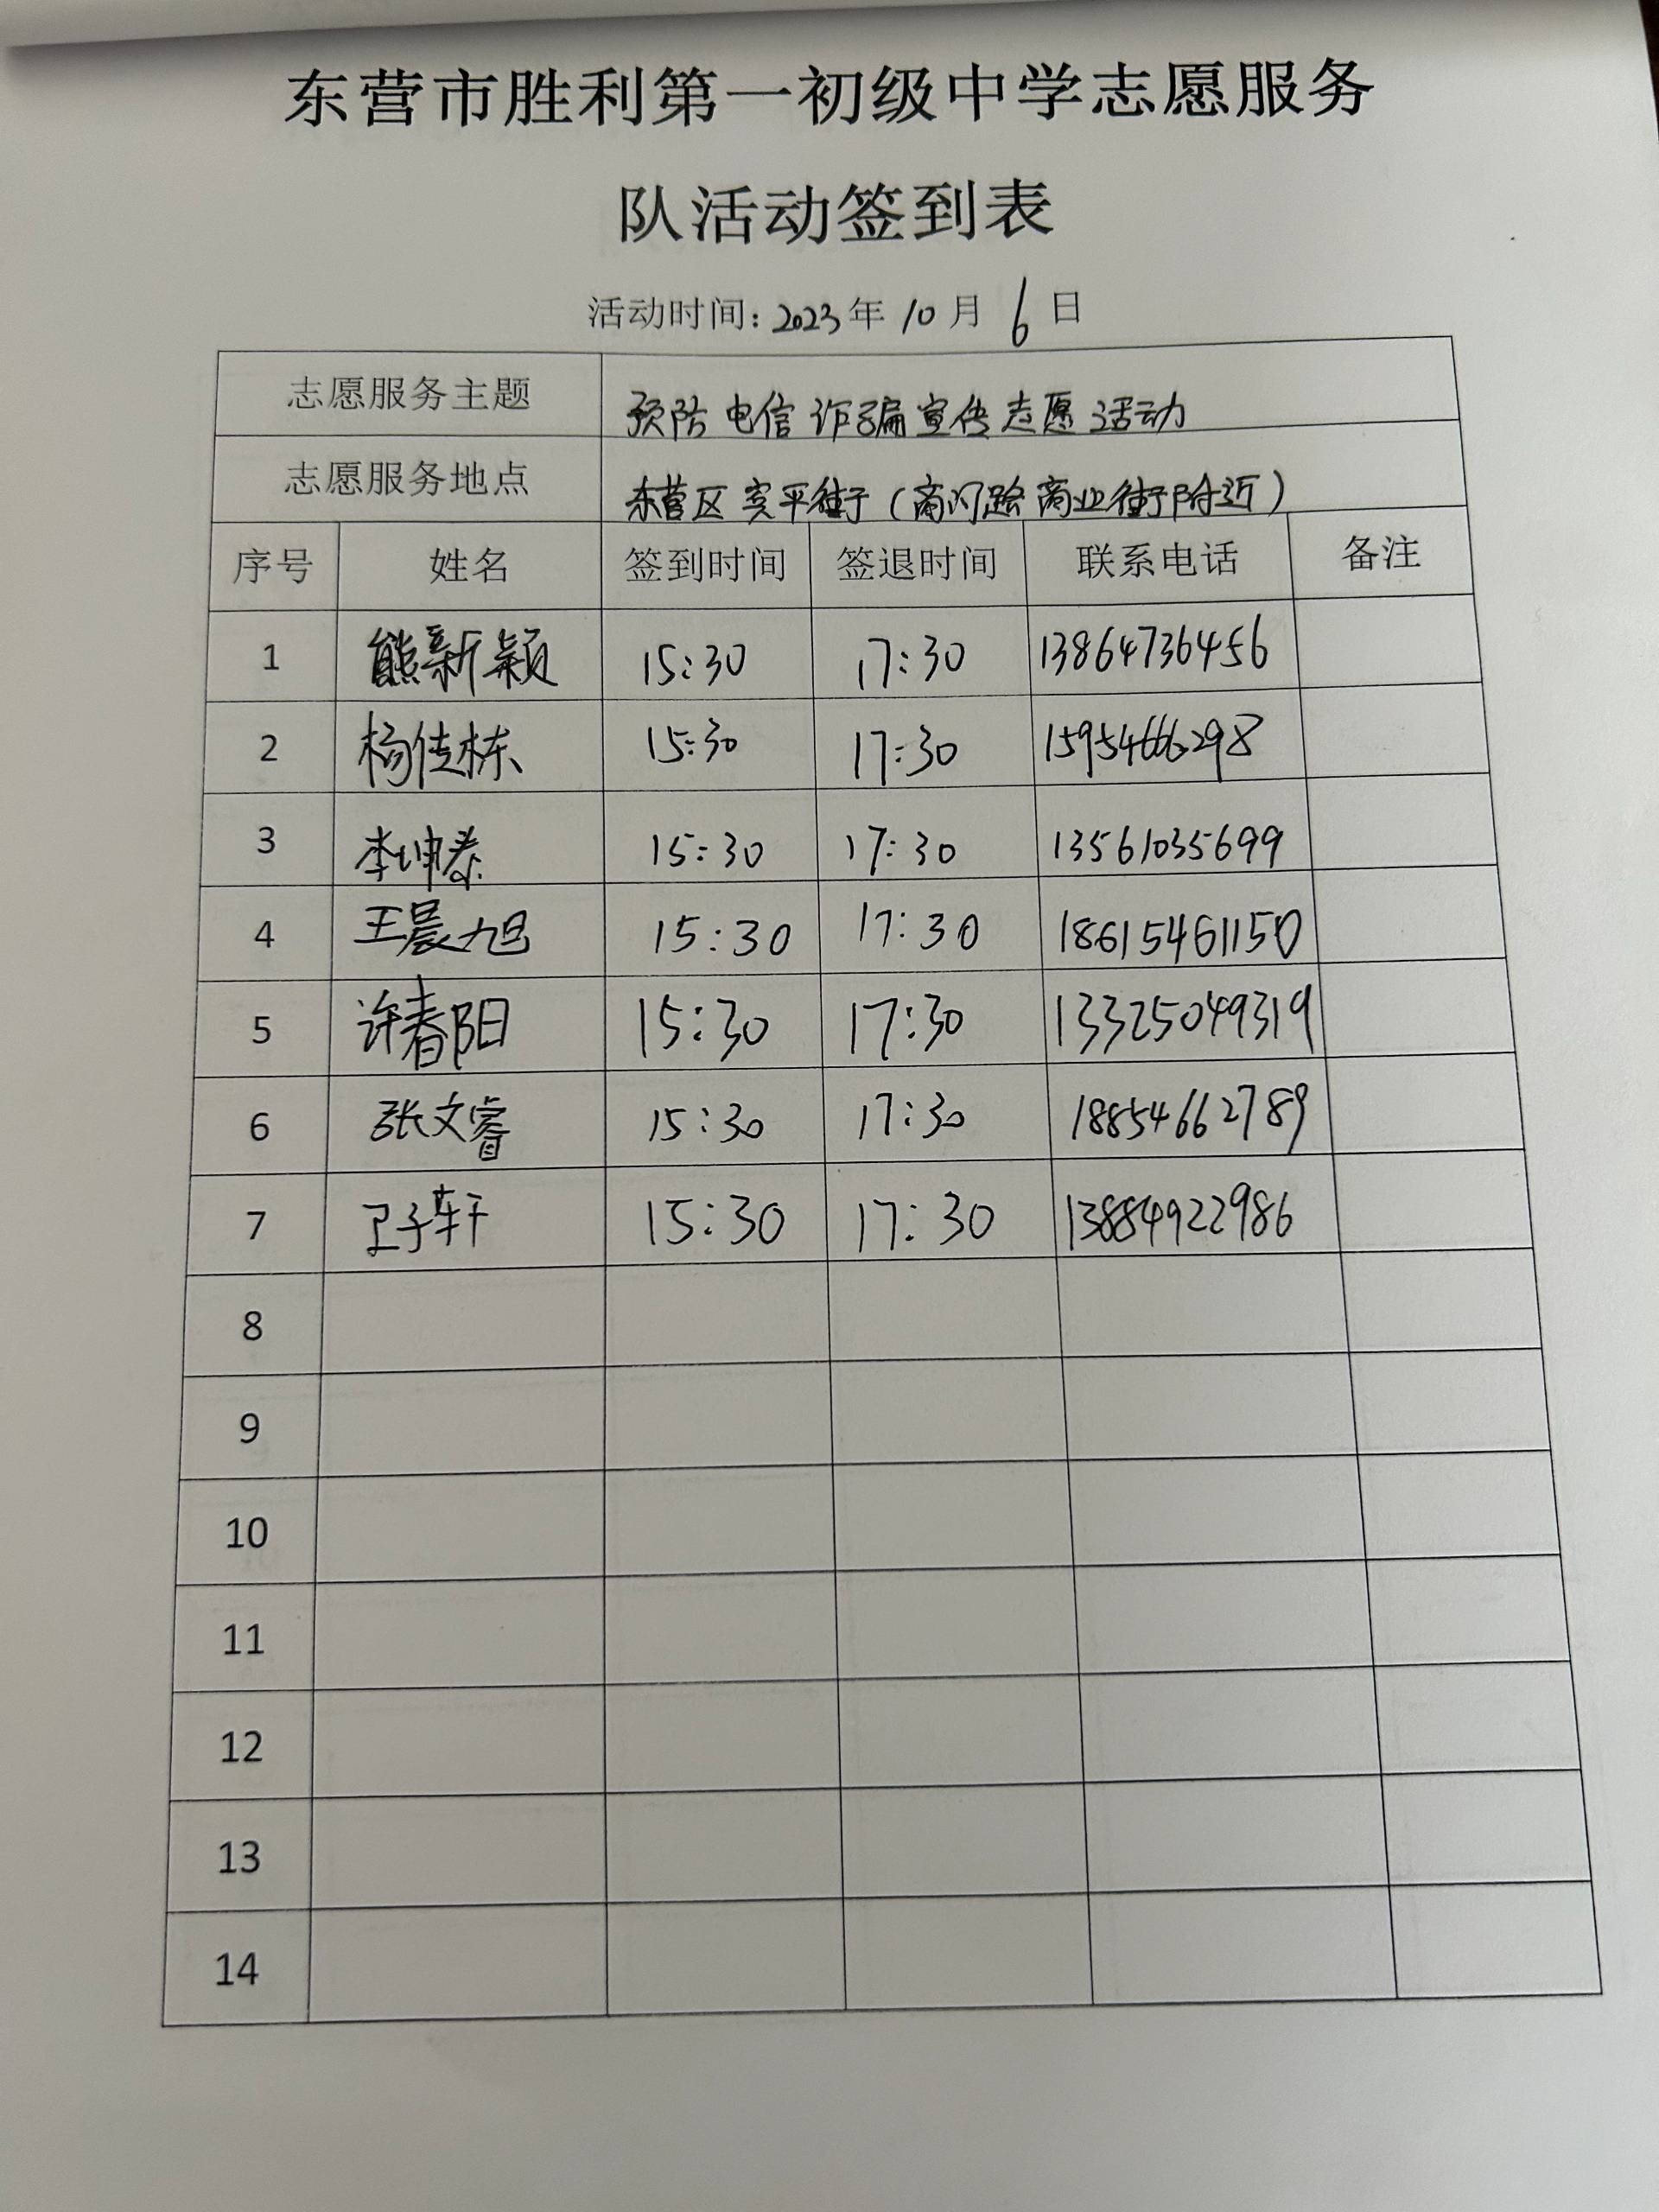 东营市胜利第一初级中学志愿服务
队活动签到表
活动时间: 2023 年 10 月 6 日
志愿服务主题 预防电信诈骗宣传志愿活动
志愿服务地点 东营区 平街（商河路商业街附近）
序号 姓名 签到时间 签退时间 联系电话 备注
1 熊新颖 15:30 17:30 13864736456
2 杨佳栋 15:30 17:30 15954666298
3 李坤泰 15:30 17:30 13561035699
4 王晨旭 15:30 17:30 18615461150
5 许春阳 15:30 17:30 13325049319
6 张文睿 15:30 17:30 18854662789
7 卫子轩 15:30 17:30 13884922986
8
9
10
11
12
13
14